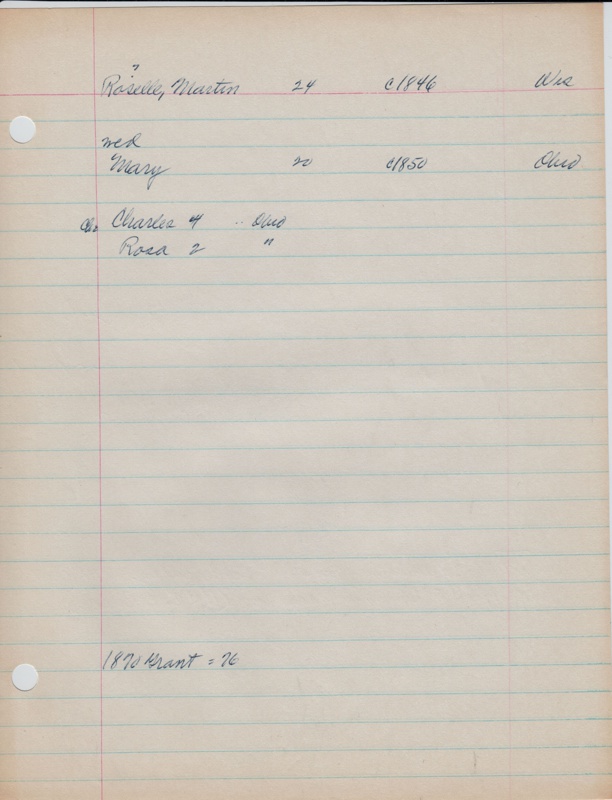 ?
Roselle, Martin 24 c1846 Wis
wed
Mary 20 c1850 Ohio
Ch. Charles 4 .. Ohio
Rosa 2 "
1870 Grant = 76